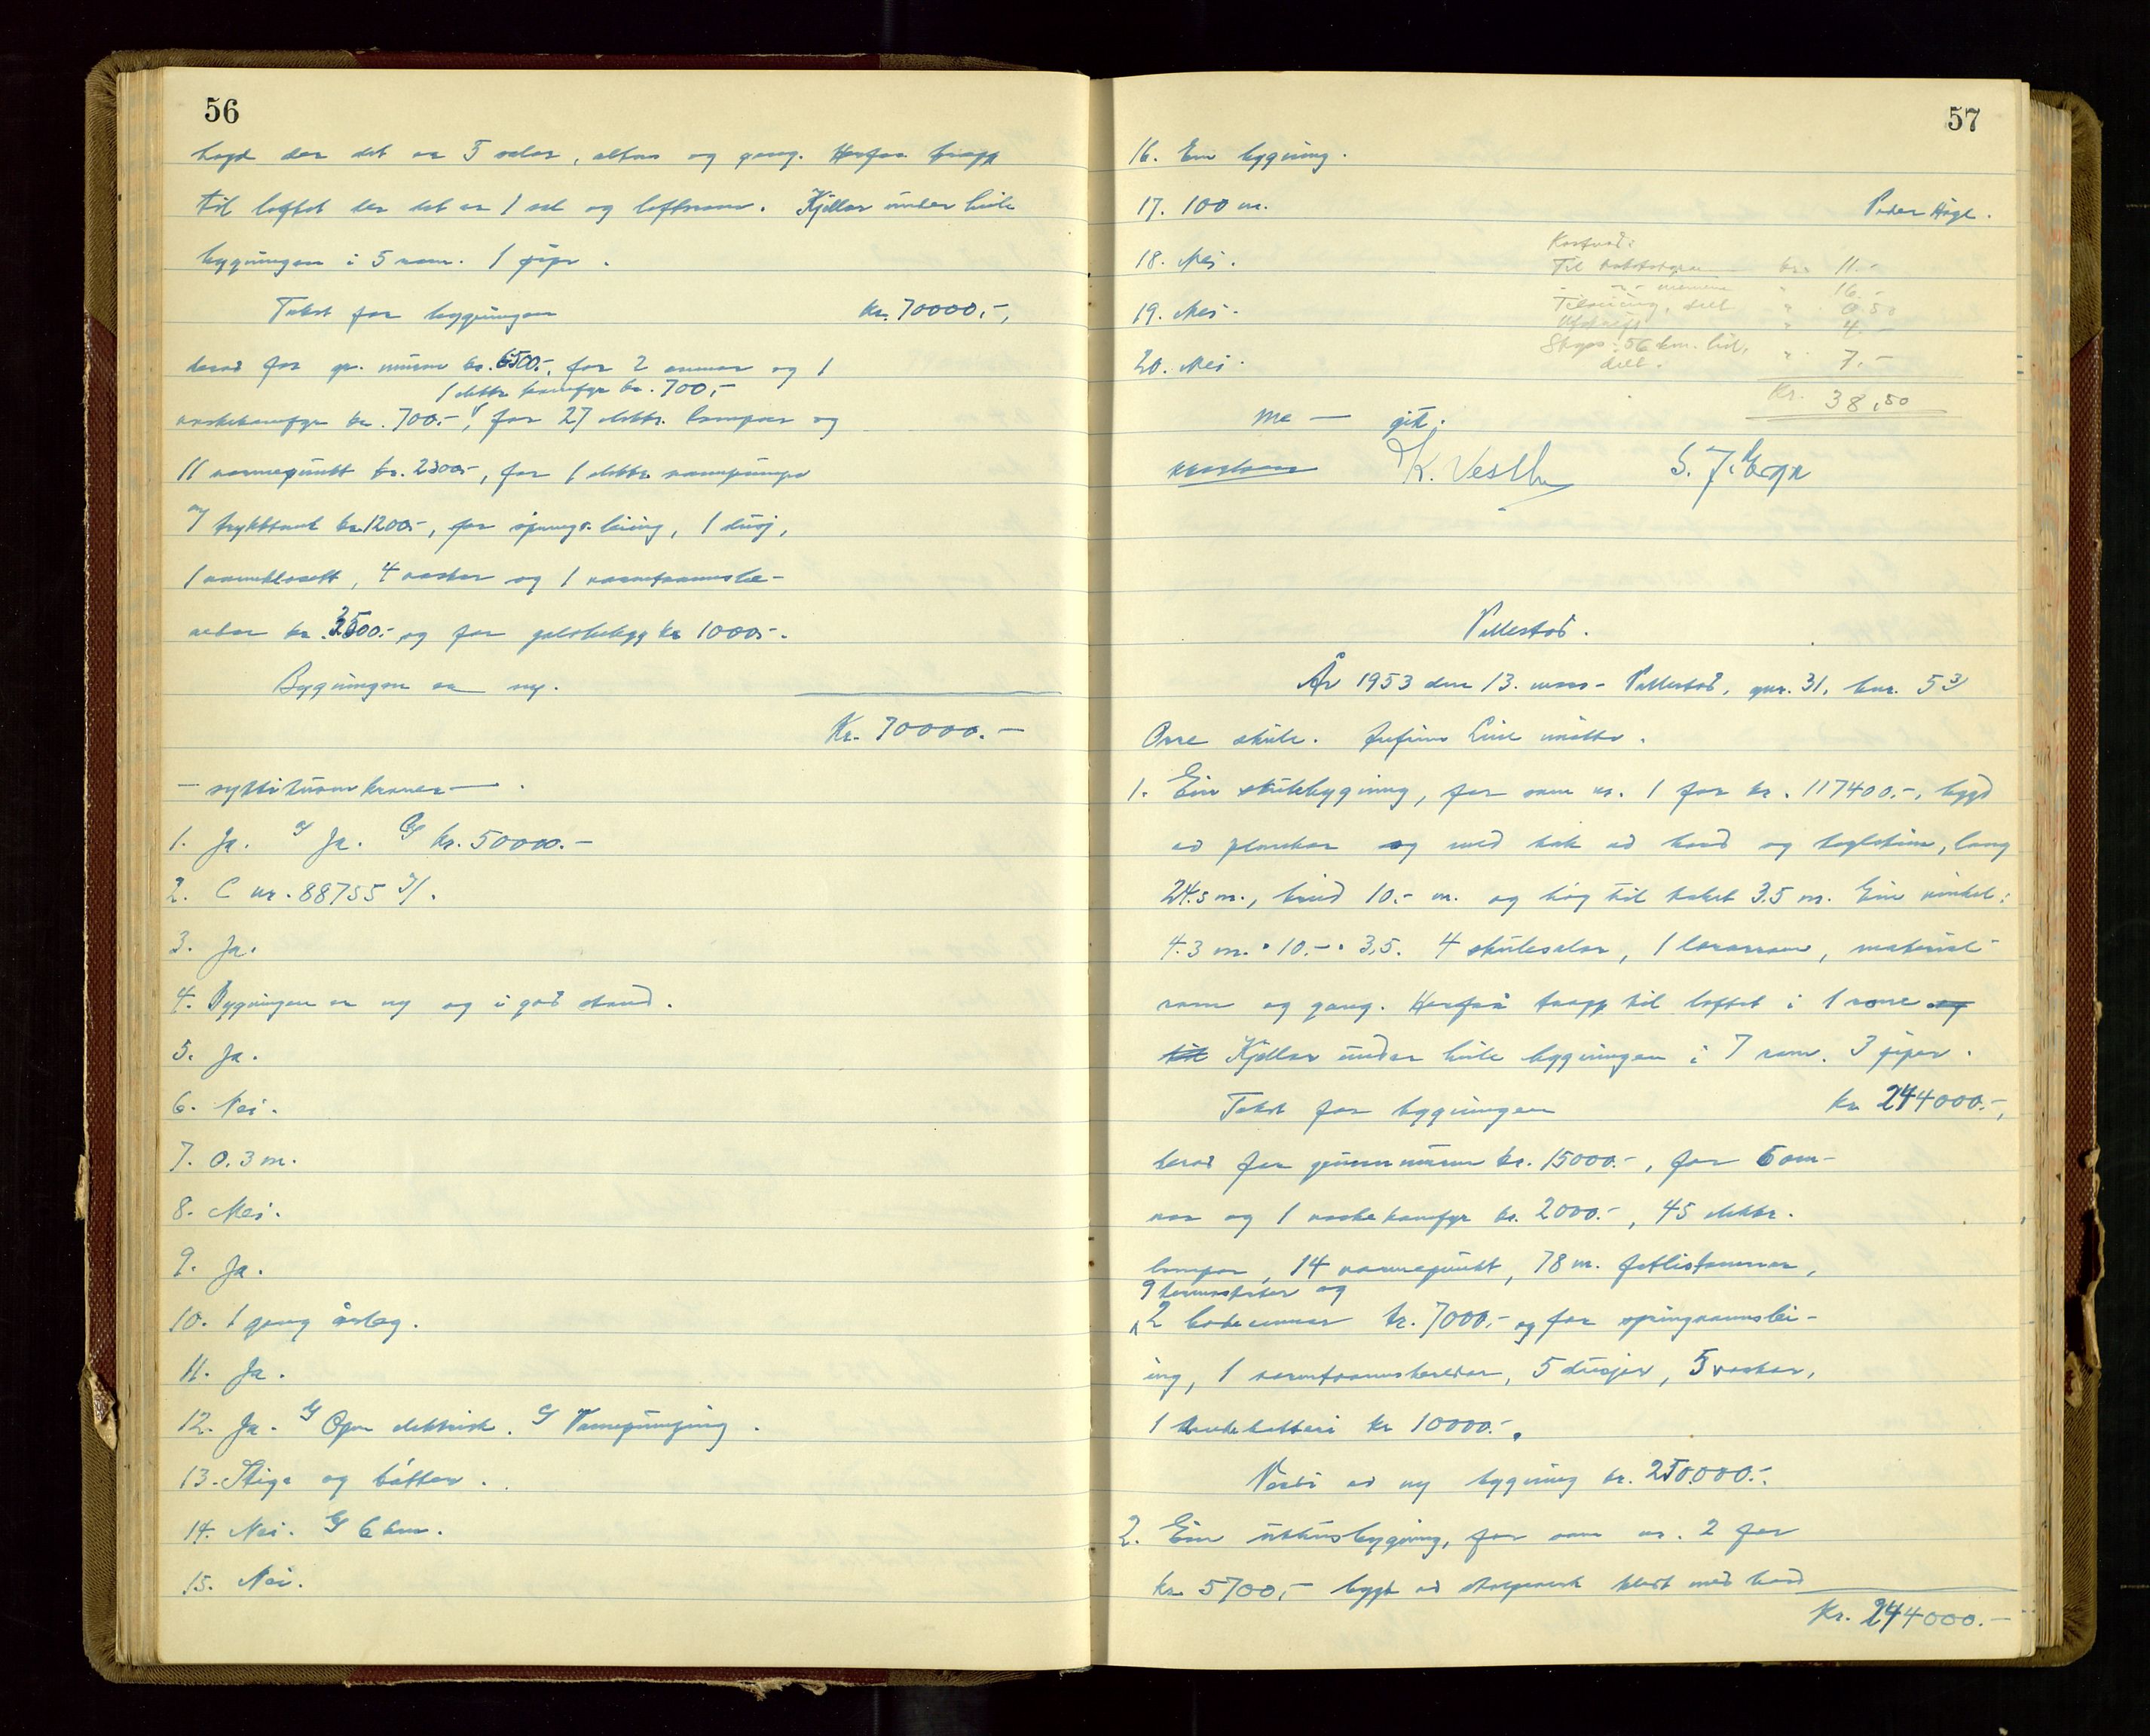 56
høgd der det er 5 rom, altan og gang. Herfrå trapp
til loftet der det er 1 rom og loftsrom. Kjellar under heile
bygningen i 5 rom. 1 pipe.
Takst for bygningen kr. 70000.-,
derav for gr. muren kr. 6500.-, for 2 omnar og 1
1 elektr. komfyr kr. 700,-
vaskekomfyr kr. 700.-, for 27 elektr. lampar og
11 varmepunkt kr. 2300.-, for 1 elektr. vasspumpe
m/ trykktank kr. 1200.-, for spring. leiing, 1 dusj,
1 vannklosett, 4 vaskar og 1 varmtvannsbe-
redar kr. 3500.- og for golvbelegg kr. 1000.-.
Bygningen er ny.
Kr. 70000.-
- sytti tusen kroner - .
1. Ja. a/ Ja. b/ kr. 50000.-
2. C nr. 88755 3/1.
3. Ja.
4. Bygningen er ny og i god stand.
5. Ja.
6. Nei.
7. 0.3 m.
8. Nei.
9. Ja.
10. 1 gang årleg.
11. Ja.
12. Ja. b/ Open elektrisk. c/ Vannpumping.
13. Stige og bøtter.
14. Nei. b/ 6 km.
15. Nei.
57
16. Ein bygning.
17. 100 m.
Peder Håge.
18. Nei.
Kostnad:
Til takststyrar kr. 11.-
- " - mennene " 16.-
19. Nei.
Teikning, delt " 0.50
Utskrift " 4.-
Skyss: 56 km. bil,
20. Nei.
delt. " 7.-
Kr. 38,50
me — git.
K. Vestly S. J. Ege
Pollestad.
År 1953 den 13. mars - Pollestad, gnr. 31, bnr. 53/
Orre skule. Josefine Line møtte.
1. Ein skulebygning, før som nr. 1 for kr. 117400.-, bygd
av plankar og med tak av bord og teglstein, lang
24.5 m., breid 10.- m. og høg til taket 3.5 m. Ein vinkel:
4.3 m. · 10.- · 3,5. 4 skulesalar, 1 lærarrom, material-
rom og gang. Herfrå trapp til loftet i 1 rom og
til Kjellar under heile bygningen i 7 rom. 3 piper.
Takst for bygningen kr. 244000.-,
derav for grunnmuren kr. 15000.-, for 6 om-
nar og 1 vaskekomfyr kr. 2000.-, 45 elektr.
lampar, 14 varmepunkt, 78 m. fotlistomnar,
9 termostater og
2 badeomnar kr. 7000.- og for springvannslei-
ing, 1 varmtvannsberedar, 5 dusjar, 5 vaskar,
1 blandebatteri kr. 10000.-.
Verdi av ny bygning kr. 250.000.-.
2. Ein uthusbygning, før som nr. 2 for
kr. 5700,- bygd av stolpeverk kledt med bord
Kr. 244000.-